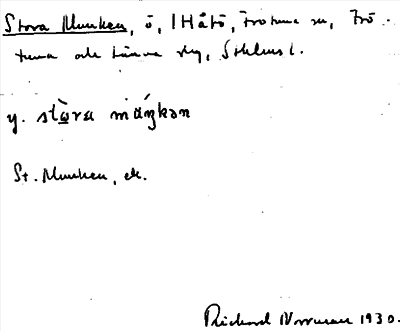 Stora Munken, ö, i Håtö, Frötuna sn, Frö-
tuna och Länna skg, Sthlms l.
y. stòra máŋkən
St. Munken, ek.
Richard Norrman 1930.